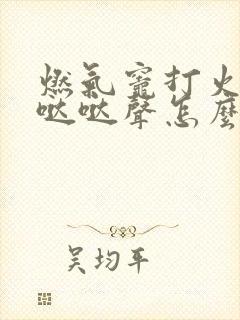 燃氣竈打火
哒哒聲怎麽
吳均平